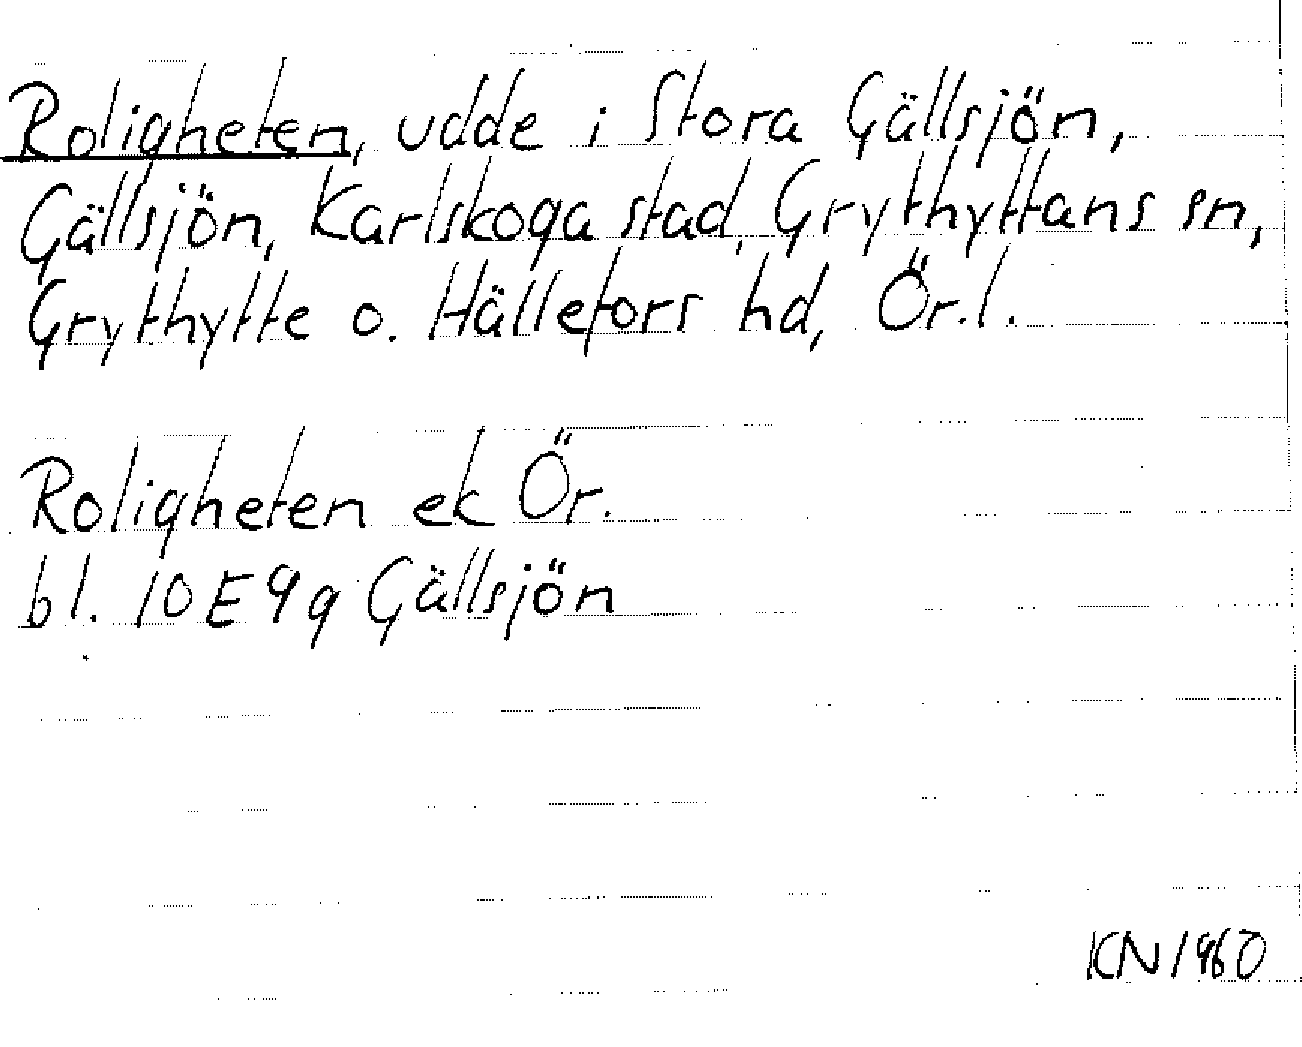 Roligheten, udde i Stora Gällsjön,
Gällsjön, Karlskoga stad, Grythyttans sn,
Grythytte o. Hällefors hd, Ör.l.
Roligheten ek Ör.
bl. 10E9g Gällsjön
KN 1960